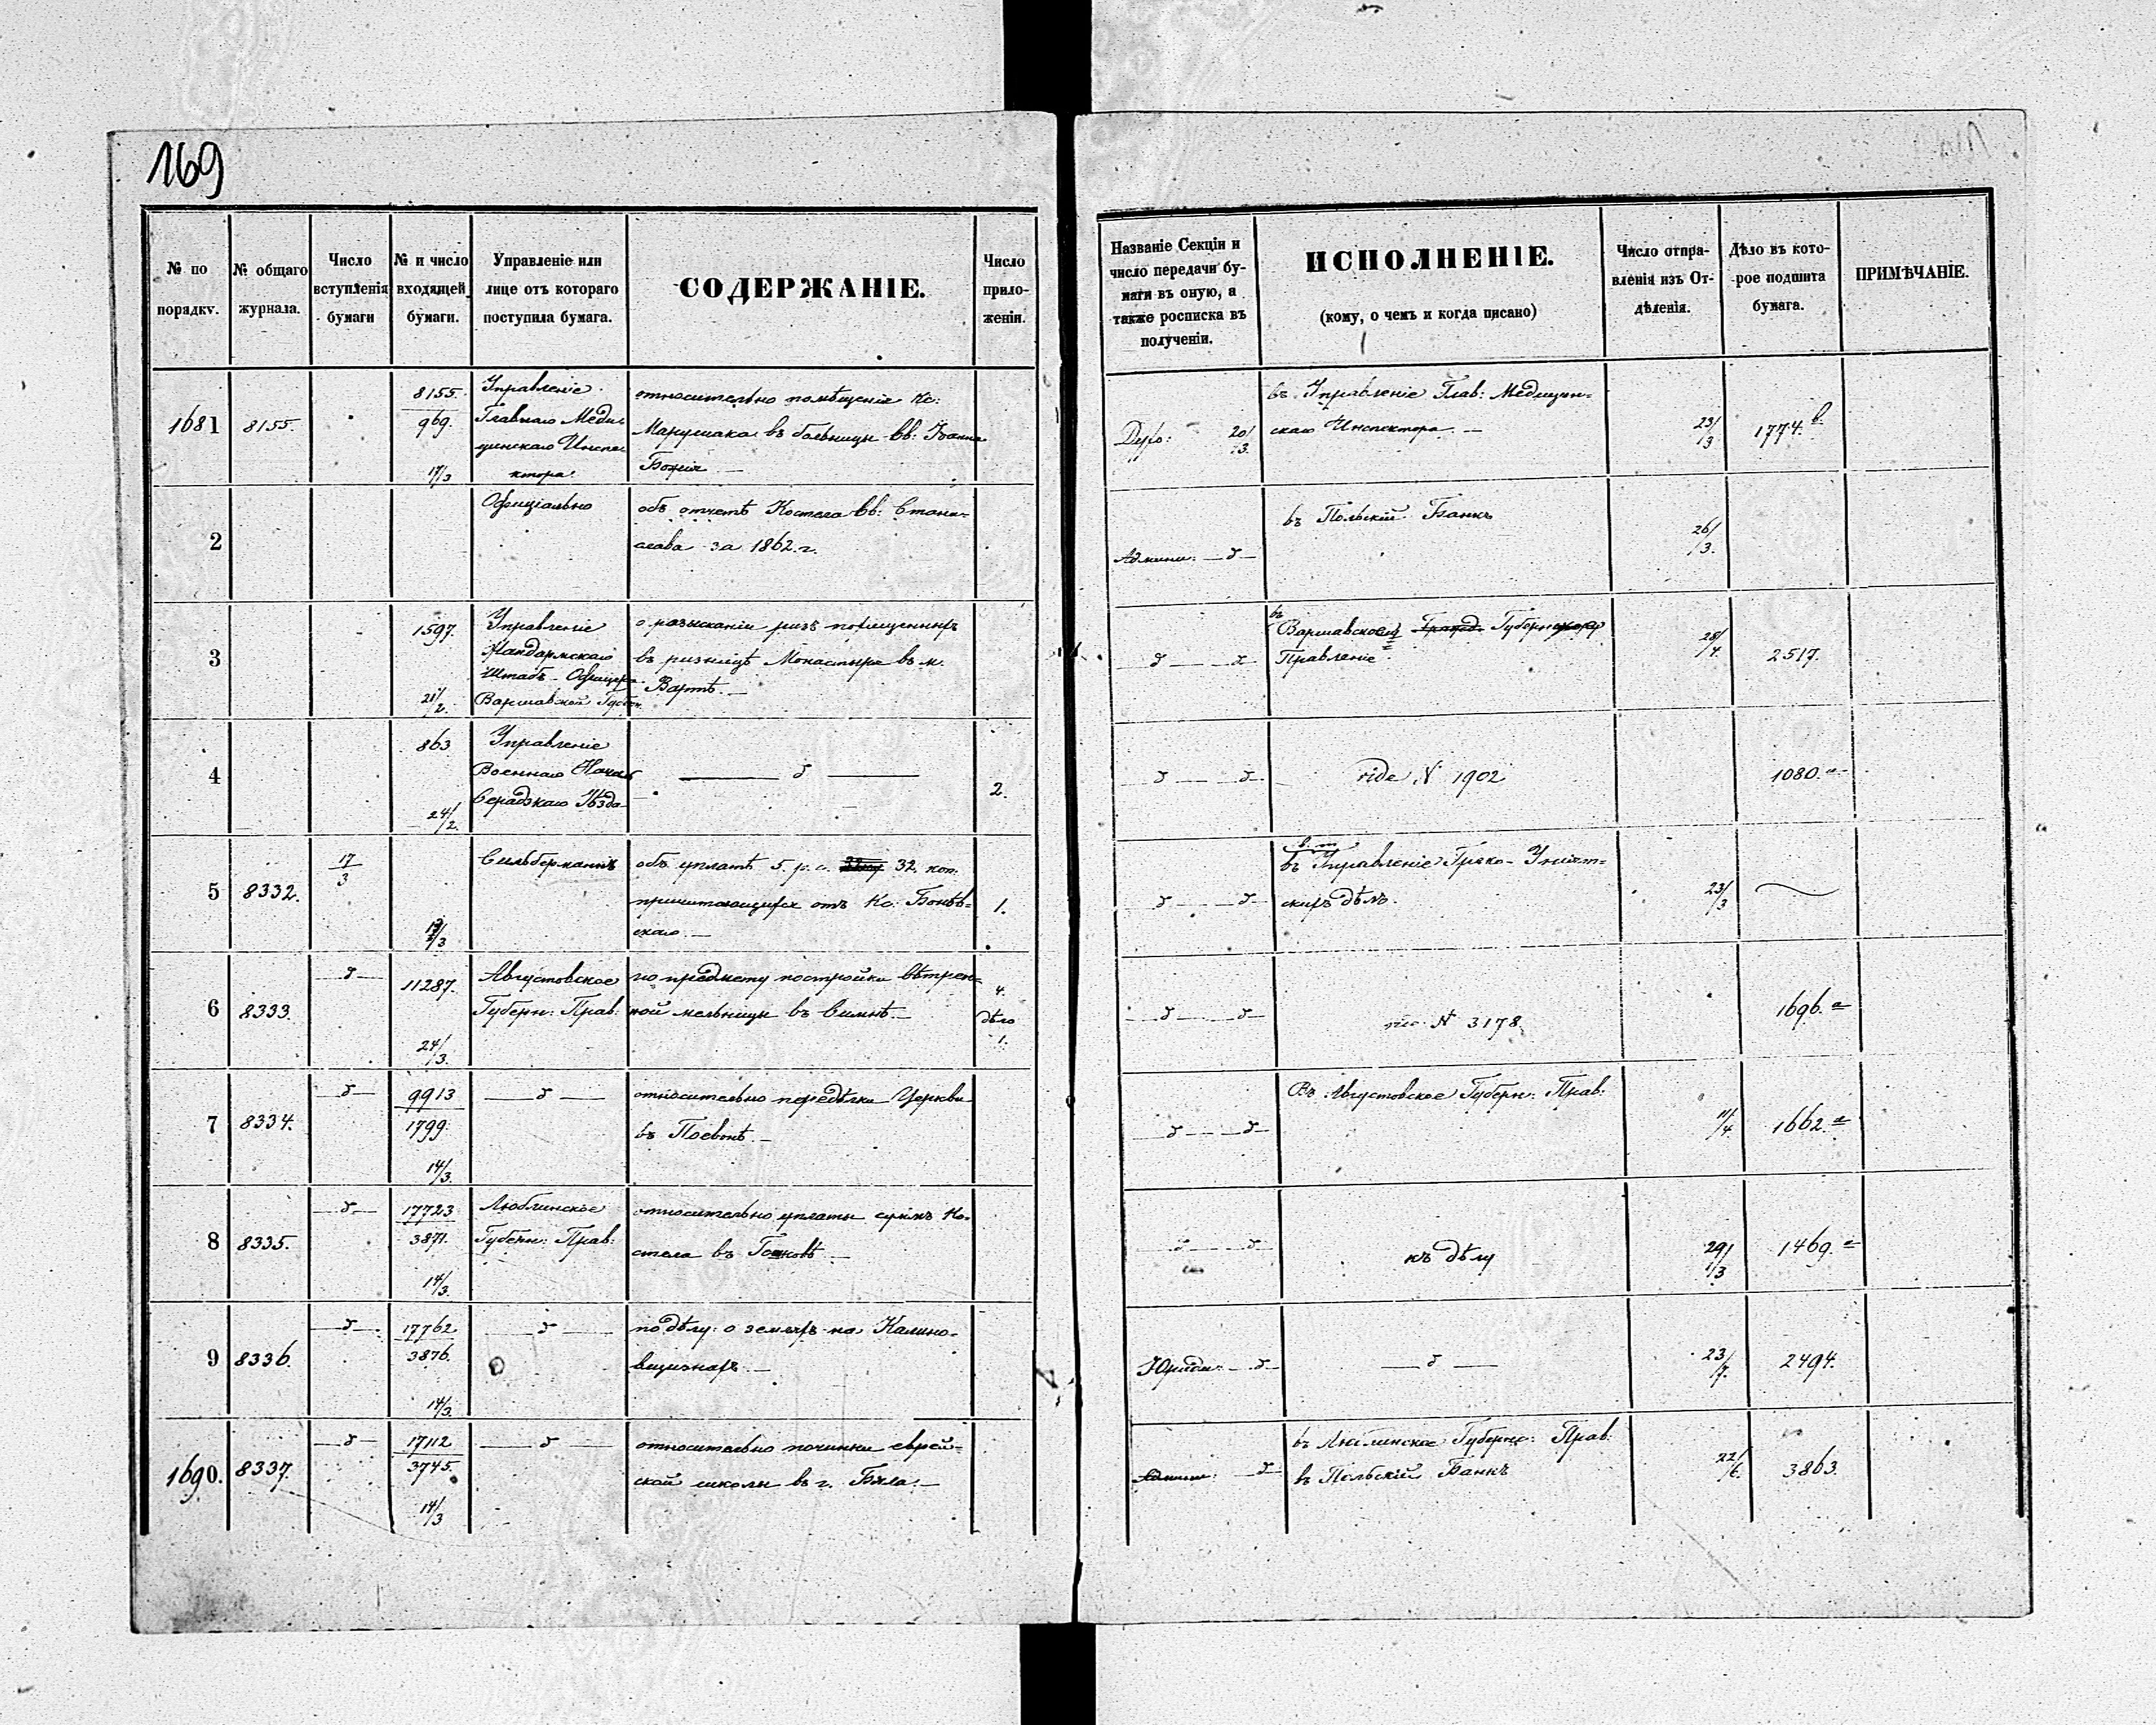 169
№ по порядку.
№ общаго журнала.
Число вступленія бумаги
№ и число входящей бумаги.
Управленіе или лице отъ котораго поступила бумага.
СОДЕРЖАНІЕ.
Число прило-женій.
Названіе Секціи и число передачи бу-маги въ оную, а также росписка въ полученіи.
ИСПОЛНЕНІЕ.
(кому, о чемъ и когда писано)
Число отпра-вленія изъ От-дѣленія.
Дѣло въ кото-рое подшита бумага.
ПРИМѢЧАНІЕ.
1681
8155.
8155.
969.
17/3
Управленіе
Главнаго Меди-
цинскаго Инспе-
ктора
относительно помѣщенія Кс:
въ больницы Св: Іоанна
Божія
20/3.
въ Управленіе Глав: Медицин-
скаго Инспектора
23/3
1774. в.
2
Офиціально
объ отчетѣ Костела Св: Стани-
слава за 1862 г.
Админи: — д —
въ Польскій Банкъ
26/3.
3
1597.
21/2.
Управленіе
Жандармскаго
Штабъ-Офицера
Варшавской Губерн.
о разысканіи ризъ похищенныхъ
въ ризницѣ Монастыря въ м.
Вартѣ.
— д — д —
въ
Варшавское Гражд. Губернское
Правленіе
28/4.
2517.
4
863
24/2.
Управленіе
Военнаго Начал
Серадзкаго Уѣзда
— д —
2.
— д — д —
vide N 1902
1080. а
5
8332.
17/3
17/3
Сильберманъ
объ уплатѣ 5. р. с. 32. коп.
причитающихся отъ Кс:
скаго
1.
— д — д —
въ Управленіе Греко-Уніят-
скихъ дѣлъ.
23/3
6
8333.
— д —
11287.
24/3.
Августовское
Губерн: Прав:
по предмету постройки вѣтрен-
ной мельницы въ Симнѣ.
4.
дѣло
1.
— д — д —
N 3178.
1696. а
7
8334.
— д —
9913
1799.
14/3.
— д —
относительно передѣлки Церкви
въ
— д — д —
Въ Августовское Губерн: Прав:
11/4.
1662. а
8
8335.
— д —
17723
3871.
14/3.
Люблинское
Губерн: Прав:
относительно уплаты суммъ Ко-
стела въ
— д — д —
къ дѣлу
29/3
1469. а
9
8336.
— д —
17762
3876.
14/3.
— д —
по дѣлу о земляхъ на Калино-
вщизнахъ
Юриди: — д —
— д —
23/7.
2494.
1690.
8337.
— д —
17112
3745.
14/3
— д —
относительно починки еврей-
ской школы въ г. Бяла.
Админи: — д —
въ Люблинское Губерн: Прав:
въ Польскій Банкъ
22/6.
3863.